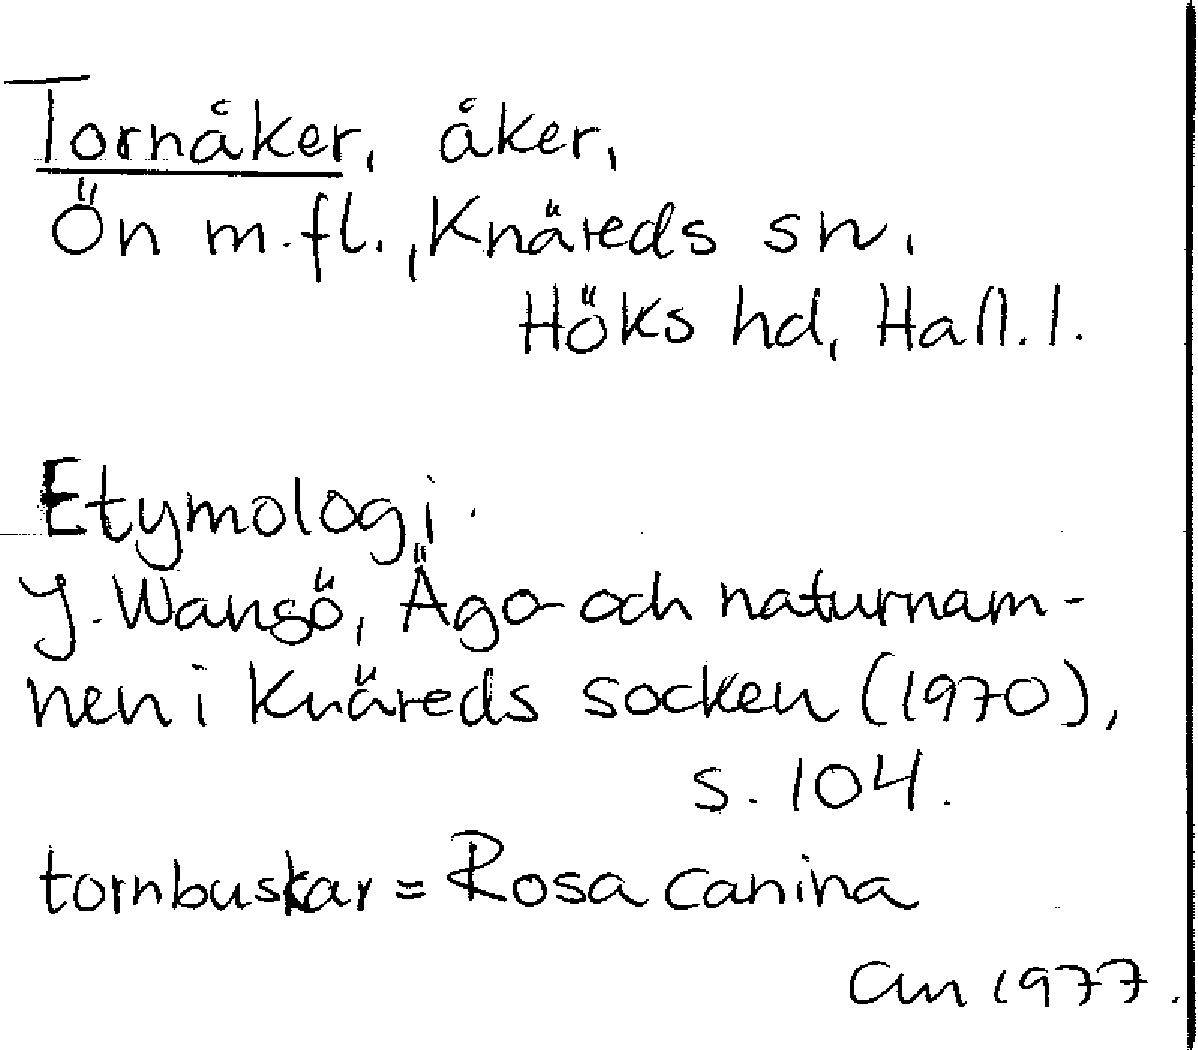 Tornåker, åker,
Ön m.fl., Knäreds sn,
Höks hd, Hall. l.
Etymologi.
J. Wangö, Ägo- och naturnam-
nen i Knäreds socken (1970),
s. 104.
tornbuskar = Rosa canina
CM 1977.